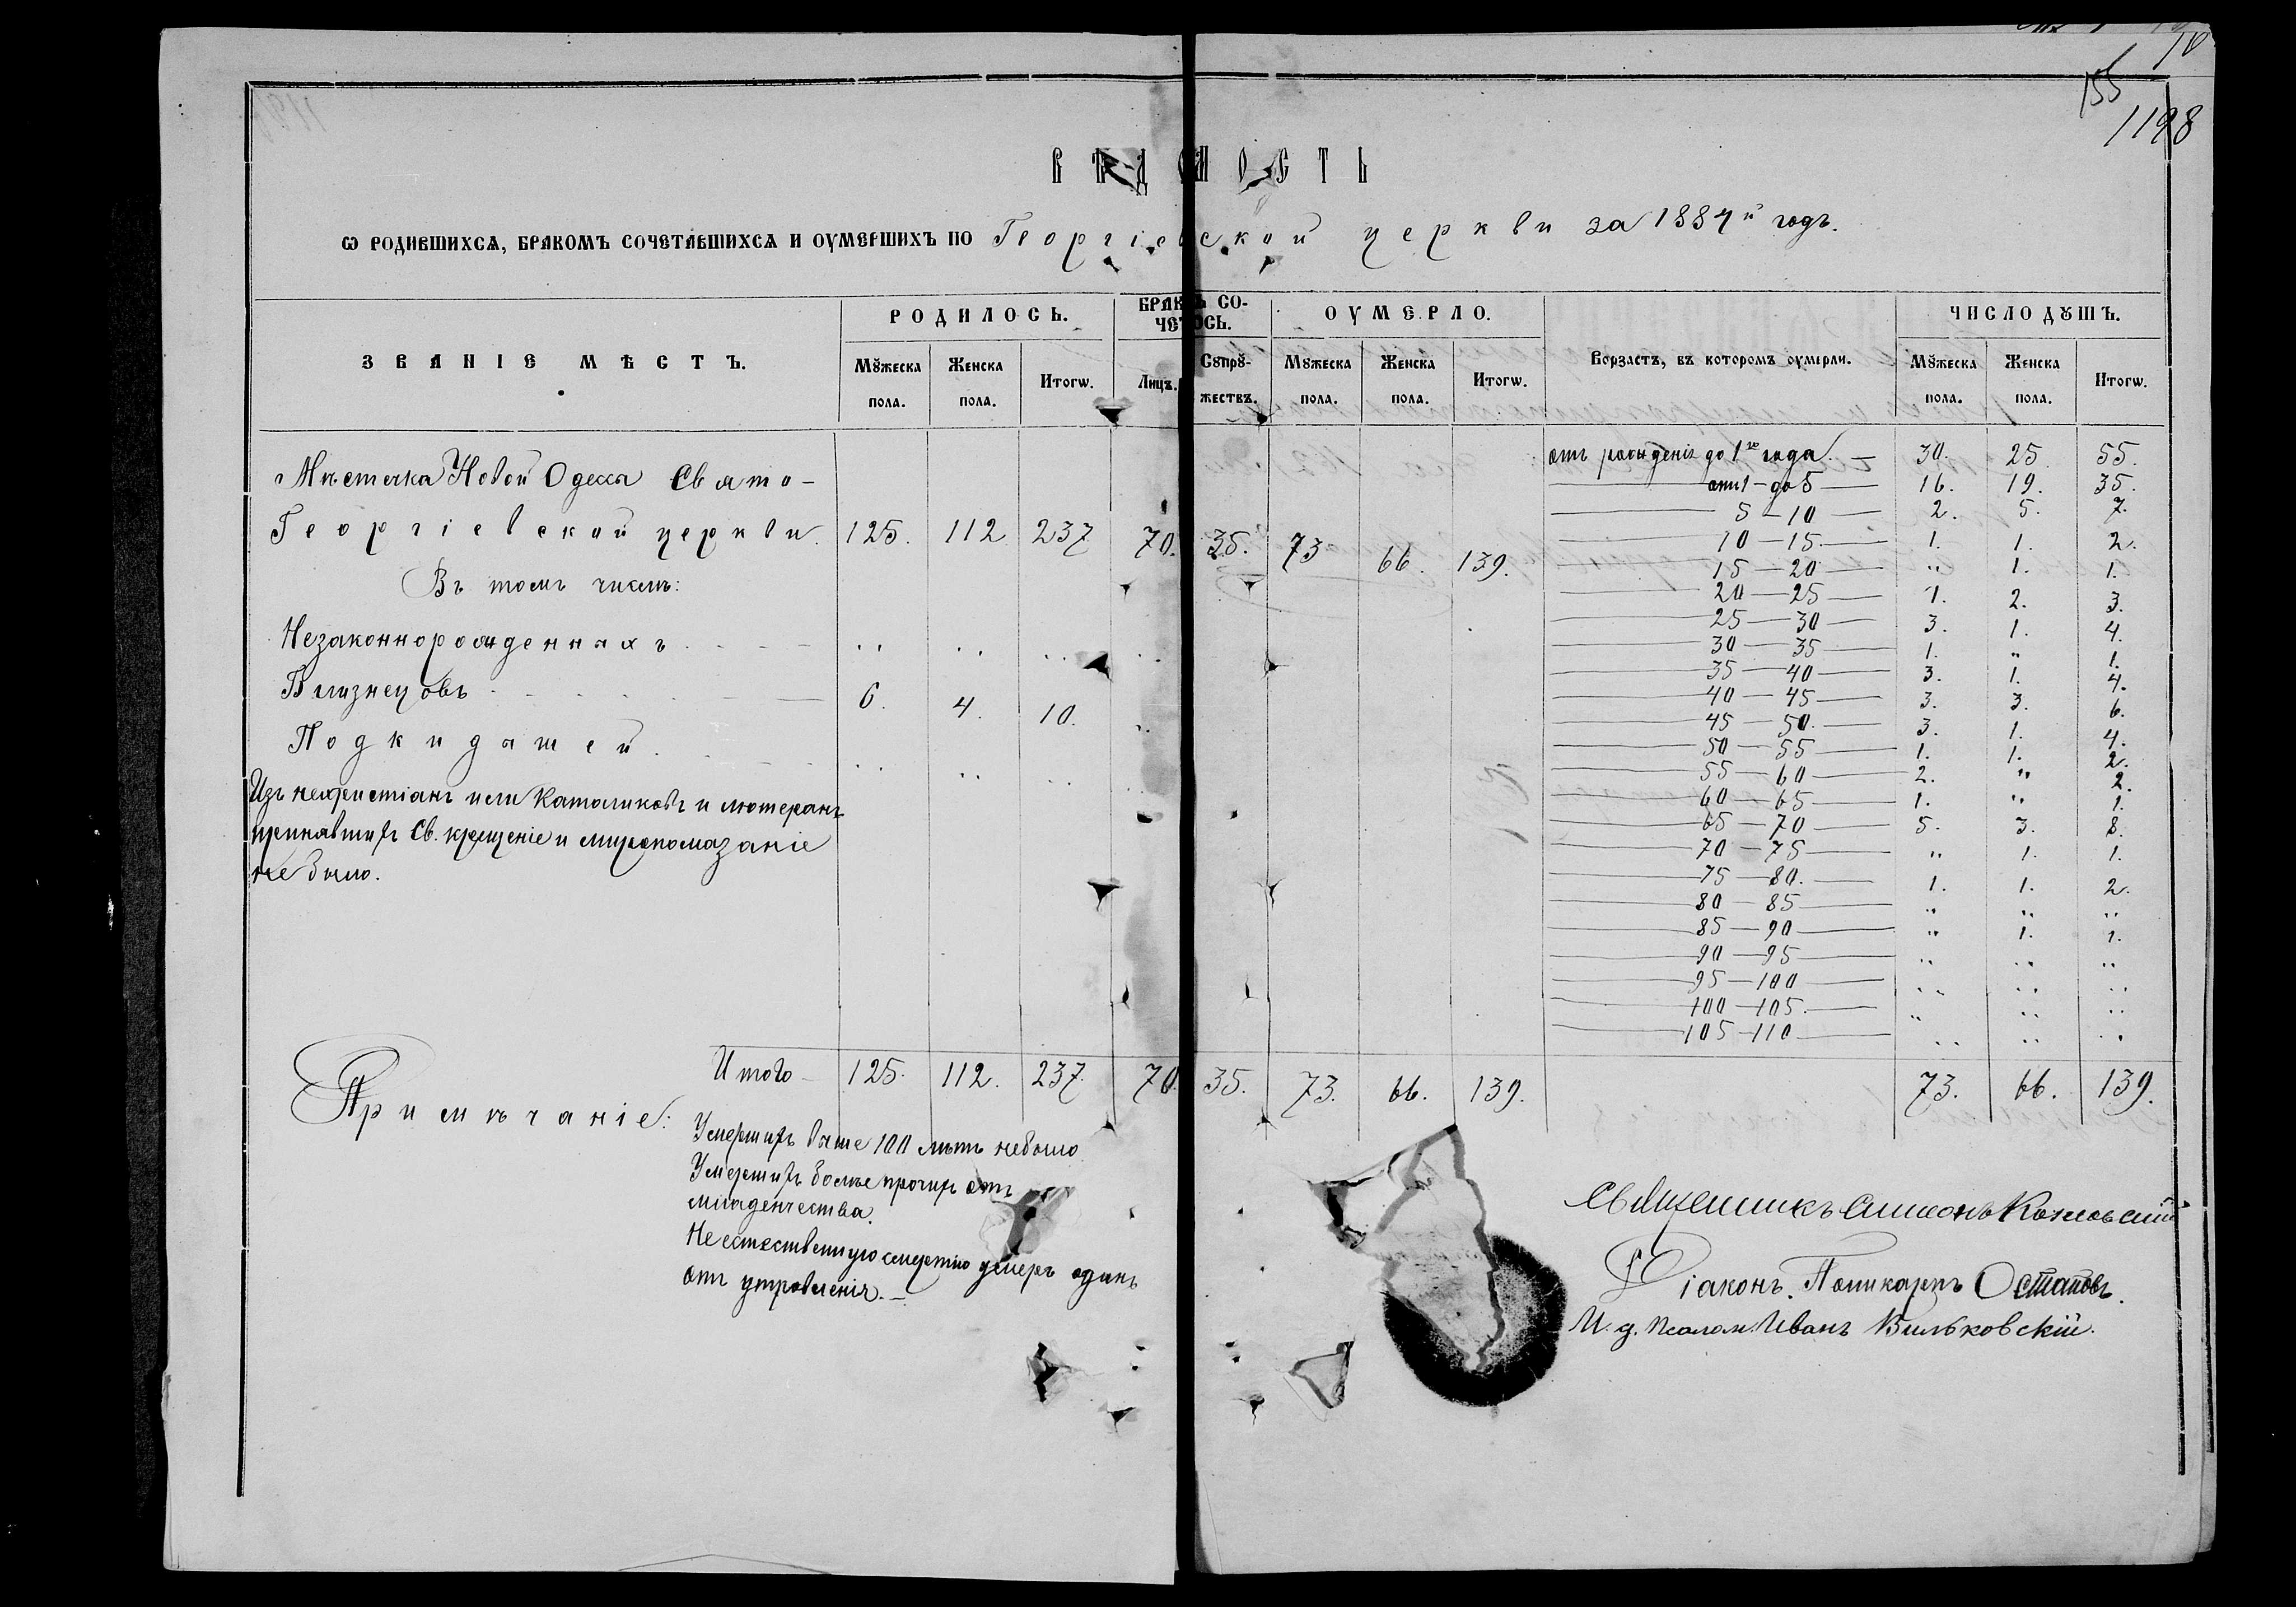 10
155
1198
ВѢДОМОСТЬ
Ѡ РОДИВШИХСѦ, БРАКОМЪ СОЧЕТАВШИХСѦ И ОУМЕРШИХЪ ПО Георгіевской церкви за 1884й годъ.
ЗВАНІЕ МѢСТЪ. РОДИЛОСЬ. БРАКѠ СО-ЧЕТОСЬ. ОУМЕРЛО. Возрастъ, въ которомъ оумерли. ЧИСЛО ДꙊШЪ.
Мꙋжеска пола. Женска пола. Итогѡ. Лицъ. Сꙋпрꙋ-жествъ. Мꙋжеска пола. Женска пола. Итогѡ. Мꙋжеска пола. Женска пола. Итогѡ.
Мѣстечка Новой Одесса Свято-
Георгіевской церкви. 125. 112 237 70. 35. 73 66. 139.
Въ томъ числѣ:
Незаконнорожденныхъ . . . .. .. .. ..
Близнецовъ . . . 6. 4. 10. ..
Подкидышей . . . .. .. ..
Изъ нехристіанъ или Католиковъ и лютеранъ
принявшихъ Св. крещеніе и миропомазаніе
не было.
отъ рожденія до 1го года. — 30. 25 55.
отъ 1 — до 5 — 16. 19. 35.
5 — 10 — 2. 5. 7.
10 — 15. — 1. 1. 2.
15 — 20 — „ 1. 1.
20 — 25 — 1. 2. 3.
25 — 30 — 3. 1. 4.
30 — 35 — 1. „ 1.
35 — 40 — 3. 1. 4.
40 — 45 — 3. 3. 6.
45 — 50. — 3. 1. 4.
50 — 55 — 1. 1. 2.
55 — 60 — 2. „ 2.
60 — 65 — 1. „ 1.
65 — 70 — 5. 3. 8.
70 — 75 — „ 1. 1.
75 — 80. — 1. 1. 2.
80 — 85 — „ „ „
85 — 90 — „ 1. 1.
90 — 95 — „ „ „
95 — 100 — „ „ „
100 — 105. — „ „ „
105 — 110 — „ „ „
Итого — 125. 112. 237. 70 35. 73. 66. 139. 73. 66. 139.
Примѣчаніе:
Умершихъ выше 100 лѣтъ небыло
Умершихъ болѣе прочихъ отъ
младенчества.
Не естественную смертію умеръ одинъ
отъ утровленія. —
Священникъ Симеонъ Козловскій
Діаконъ. Поликарпъ Остаповъ.
И. д. псалом. Иванъ Вильковскій.